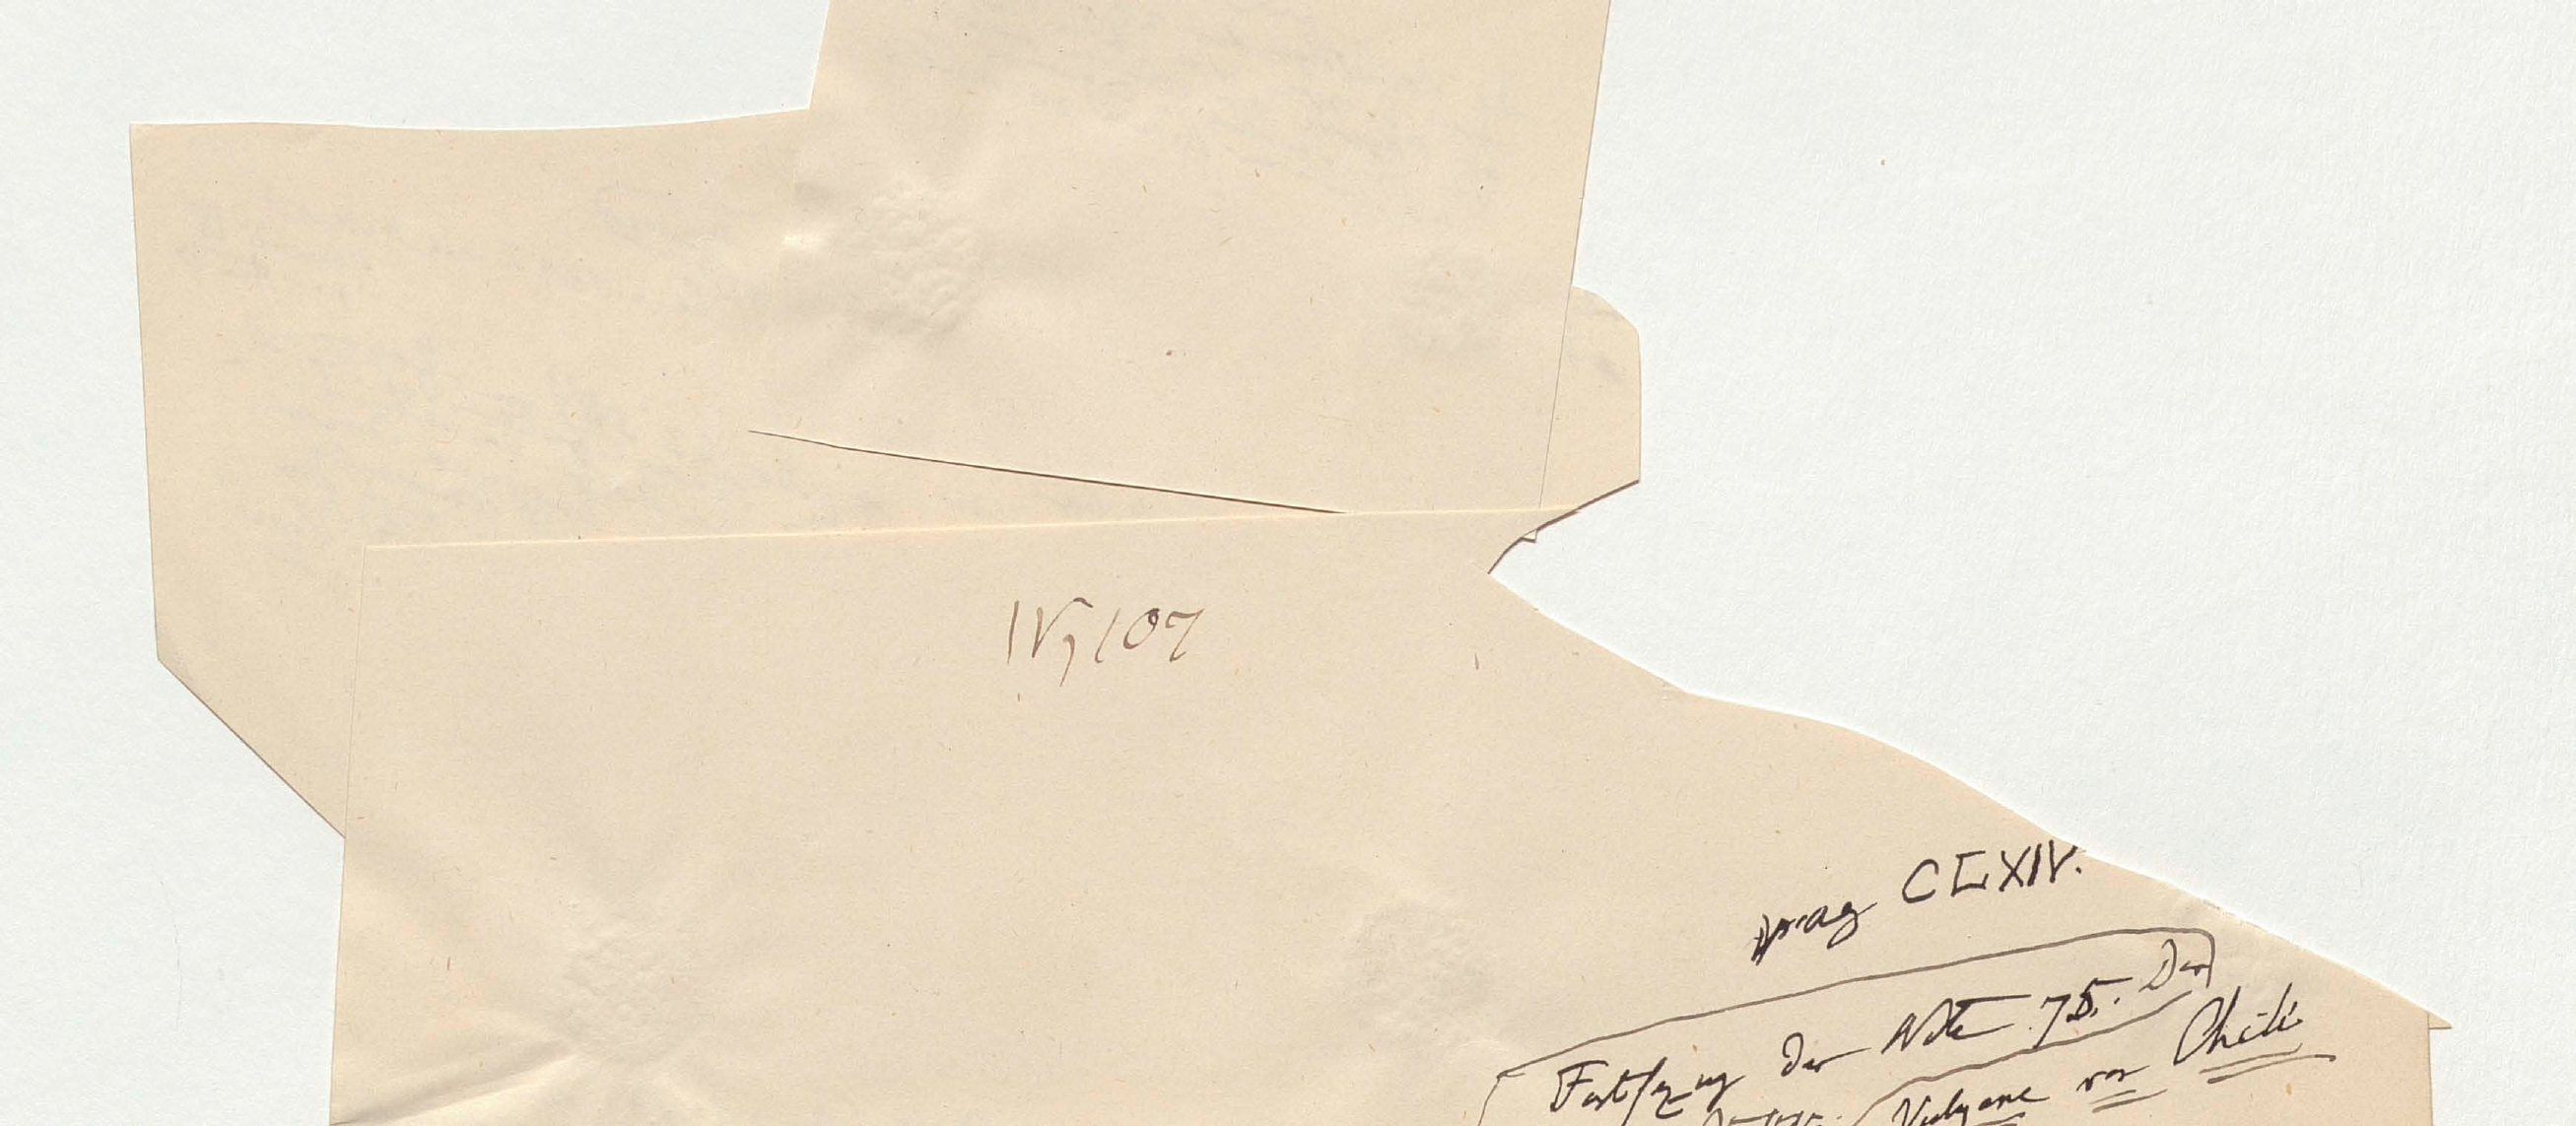 IV, 107
pag CLXIV.
Fortsezug der Note 75. Der
Vulcane von Chili